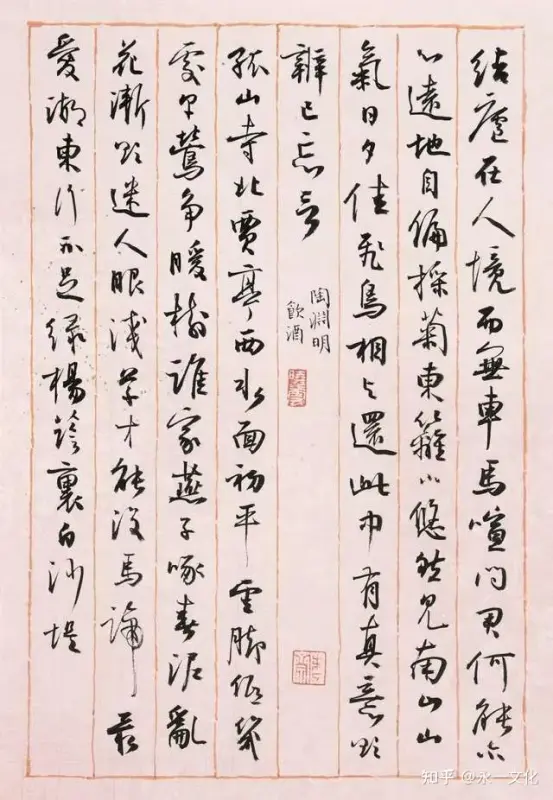 結廬在人境而無車馬喧問君何能尔
心遠地自偏採菊東籬下悠然見南山山
氣日夕佳飛鳥相与還此中有真意欲
辯已忘言
陶淵明
飲酒
孤山寺北賈亭西水面初平雲脚低幾
處早鶯争暖樹誰家燕子啄春泥亂
花漸欲迷人眼淺草才能没馬蹄最
愛湖東行不足緑楊陰裏白沙堤
知乎 @水一文化